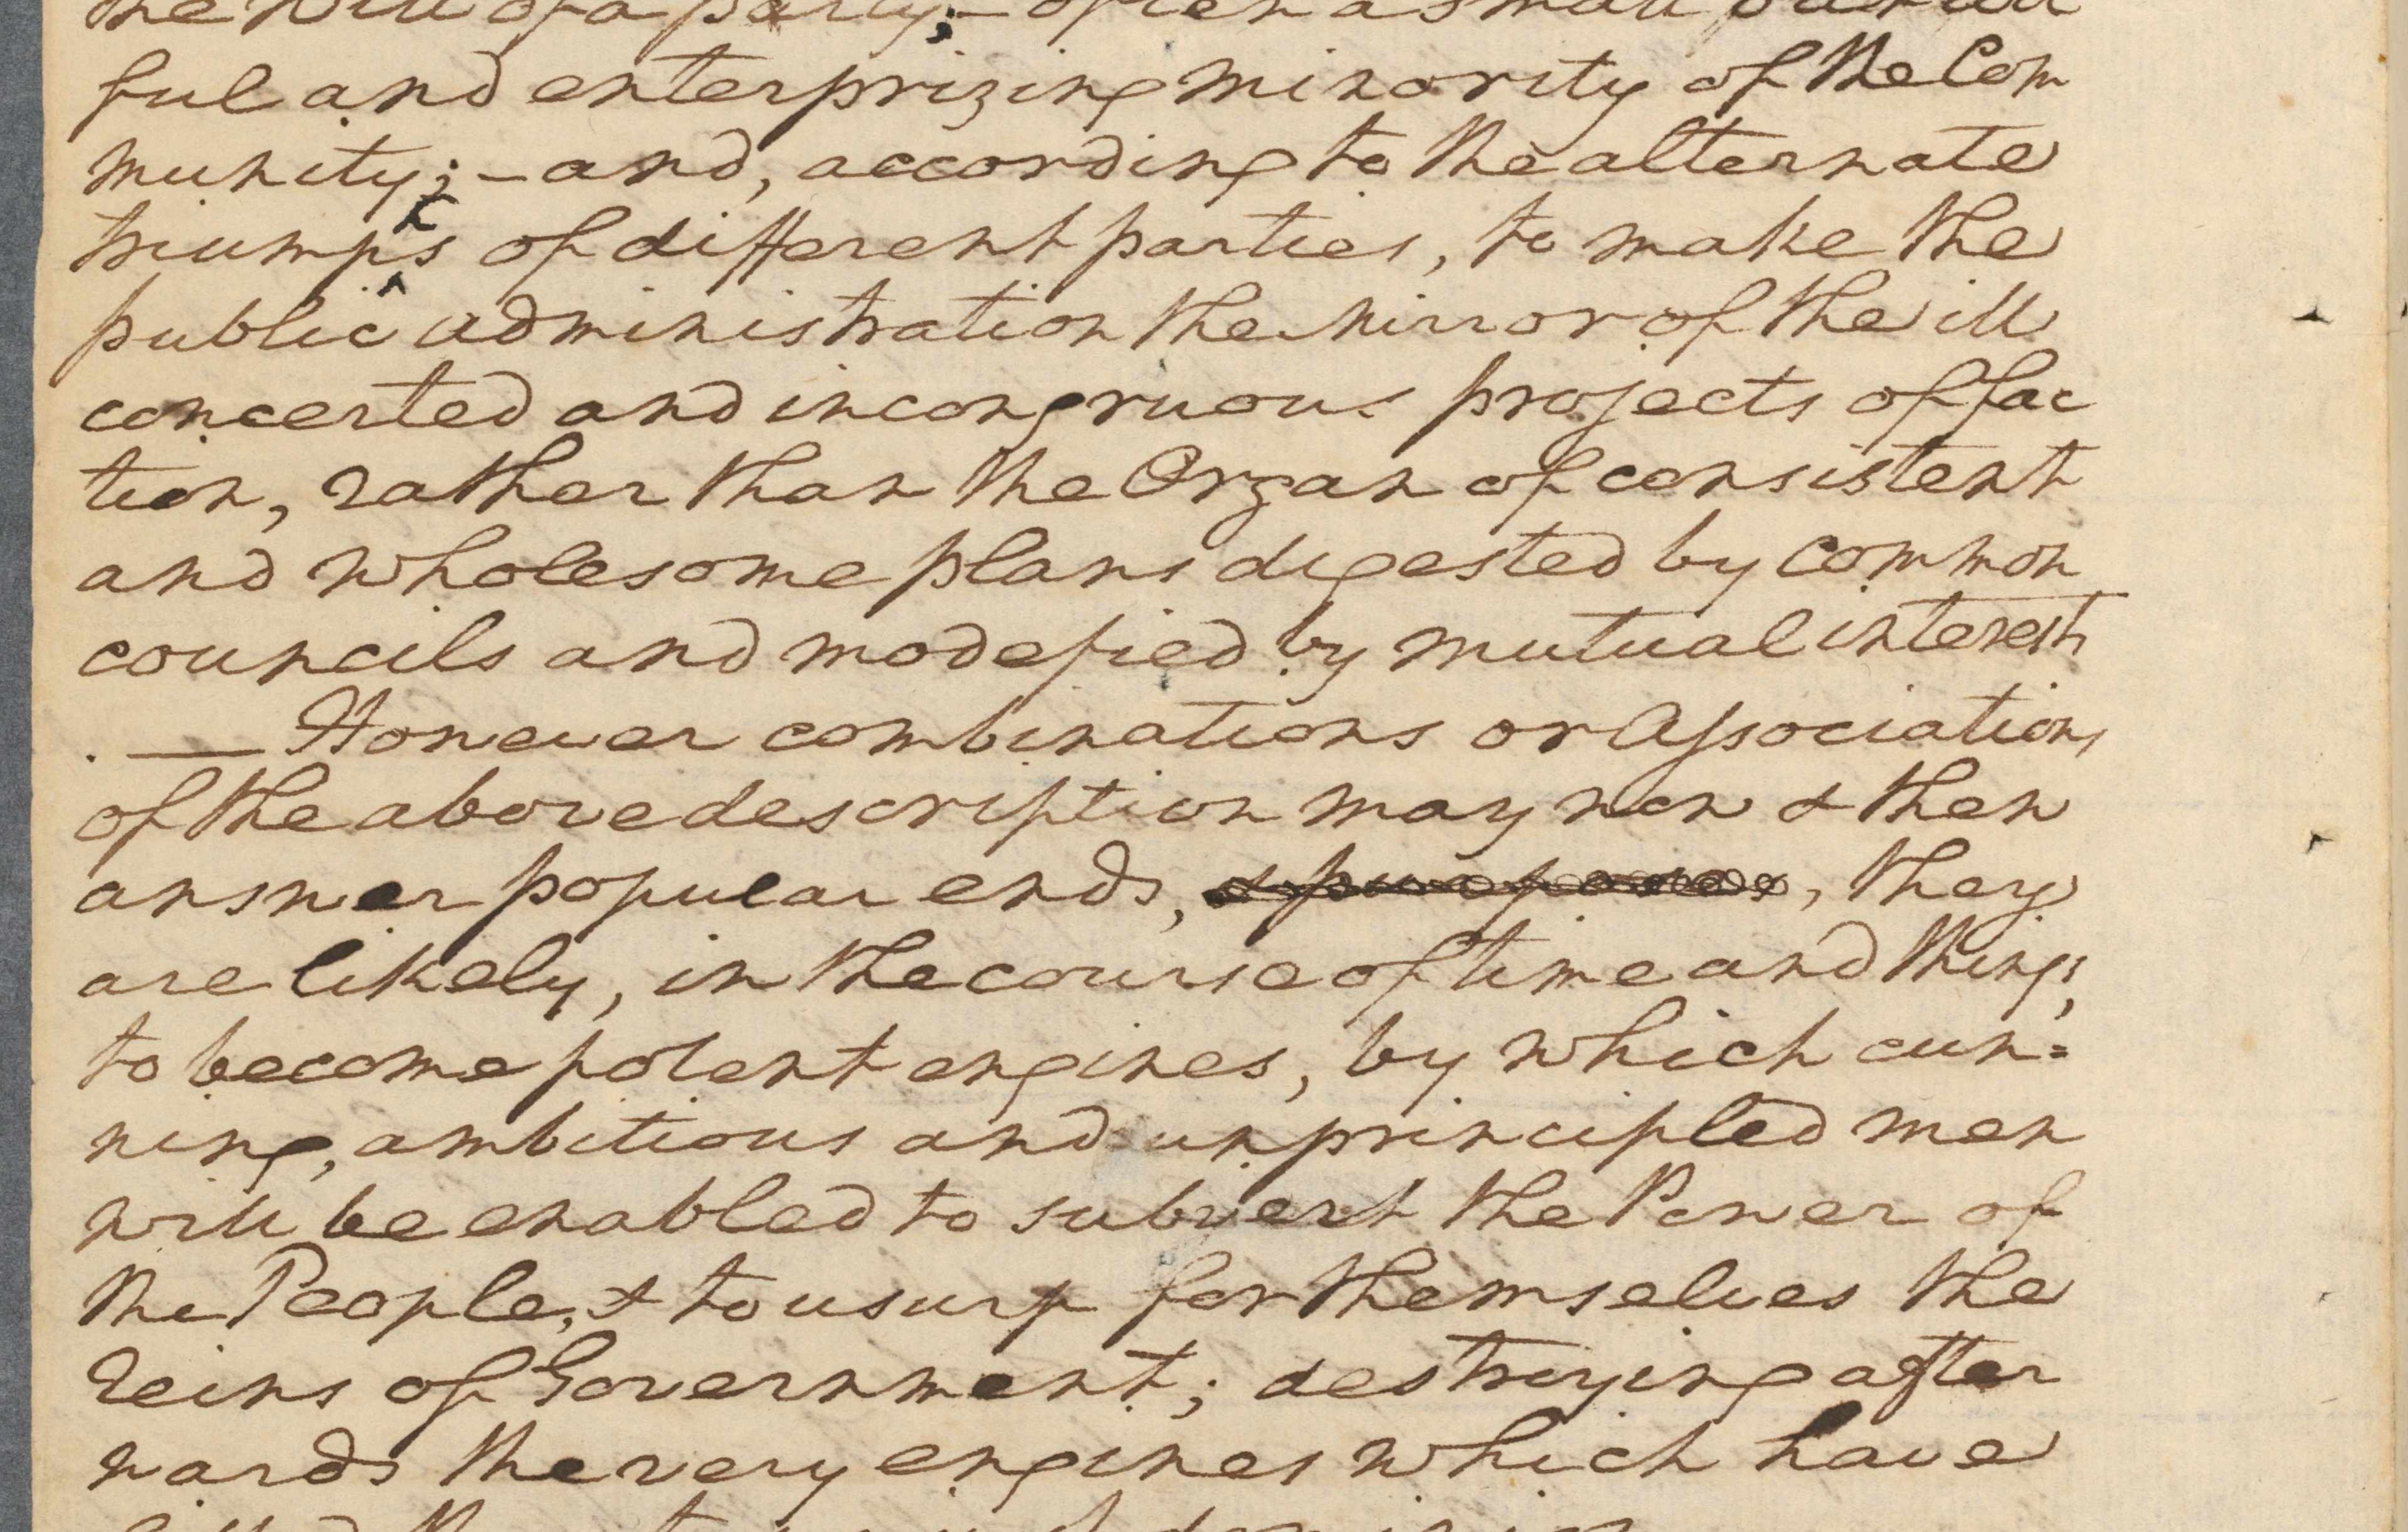 the will of a party; – often a small but
ful and enterprizing minority of the Com
munity; – and, according to the alternate
triumphs of different parties, to make the
public administration the Mirror of the ill
concerted and incongruous projects of fac
tion, rather than the Organ of consistent
and wholesome plans digested by common
councils and modefied by mutual interests
. — However combinations or Associations
of the above description may now & then
answer popular ends, & purposes, they
are likely, in the course of time and things,
to become potent engines, by which cun=
ning, ambitious and unprincipled men
will be enabled to subvert the Power of
the People, & to usurp for themselves the
reins of Government; destroying after
wards the very engines which have